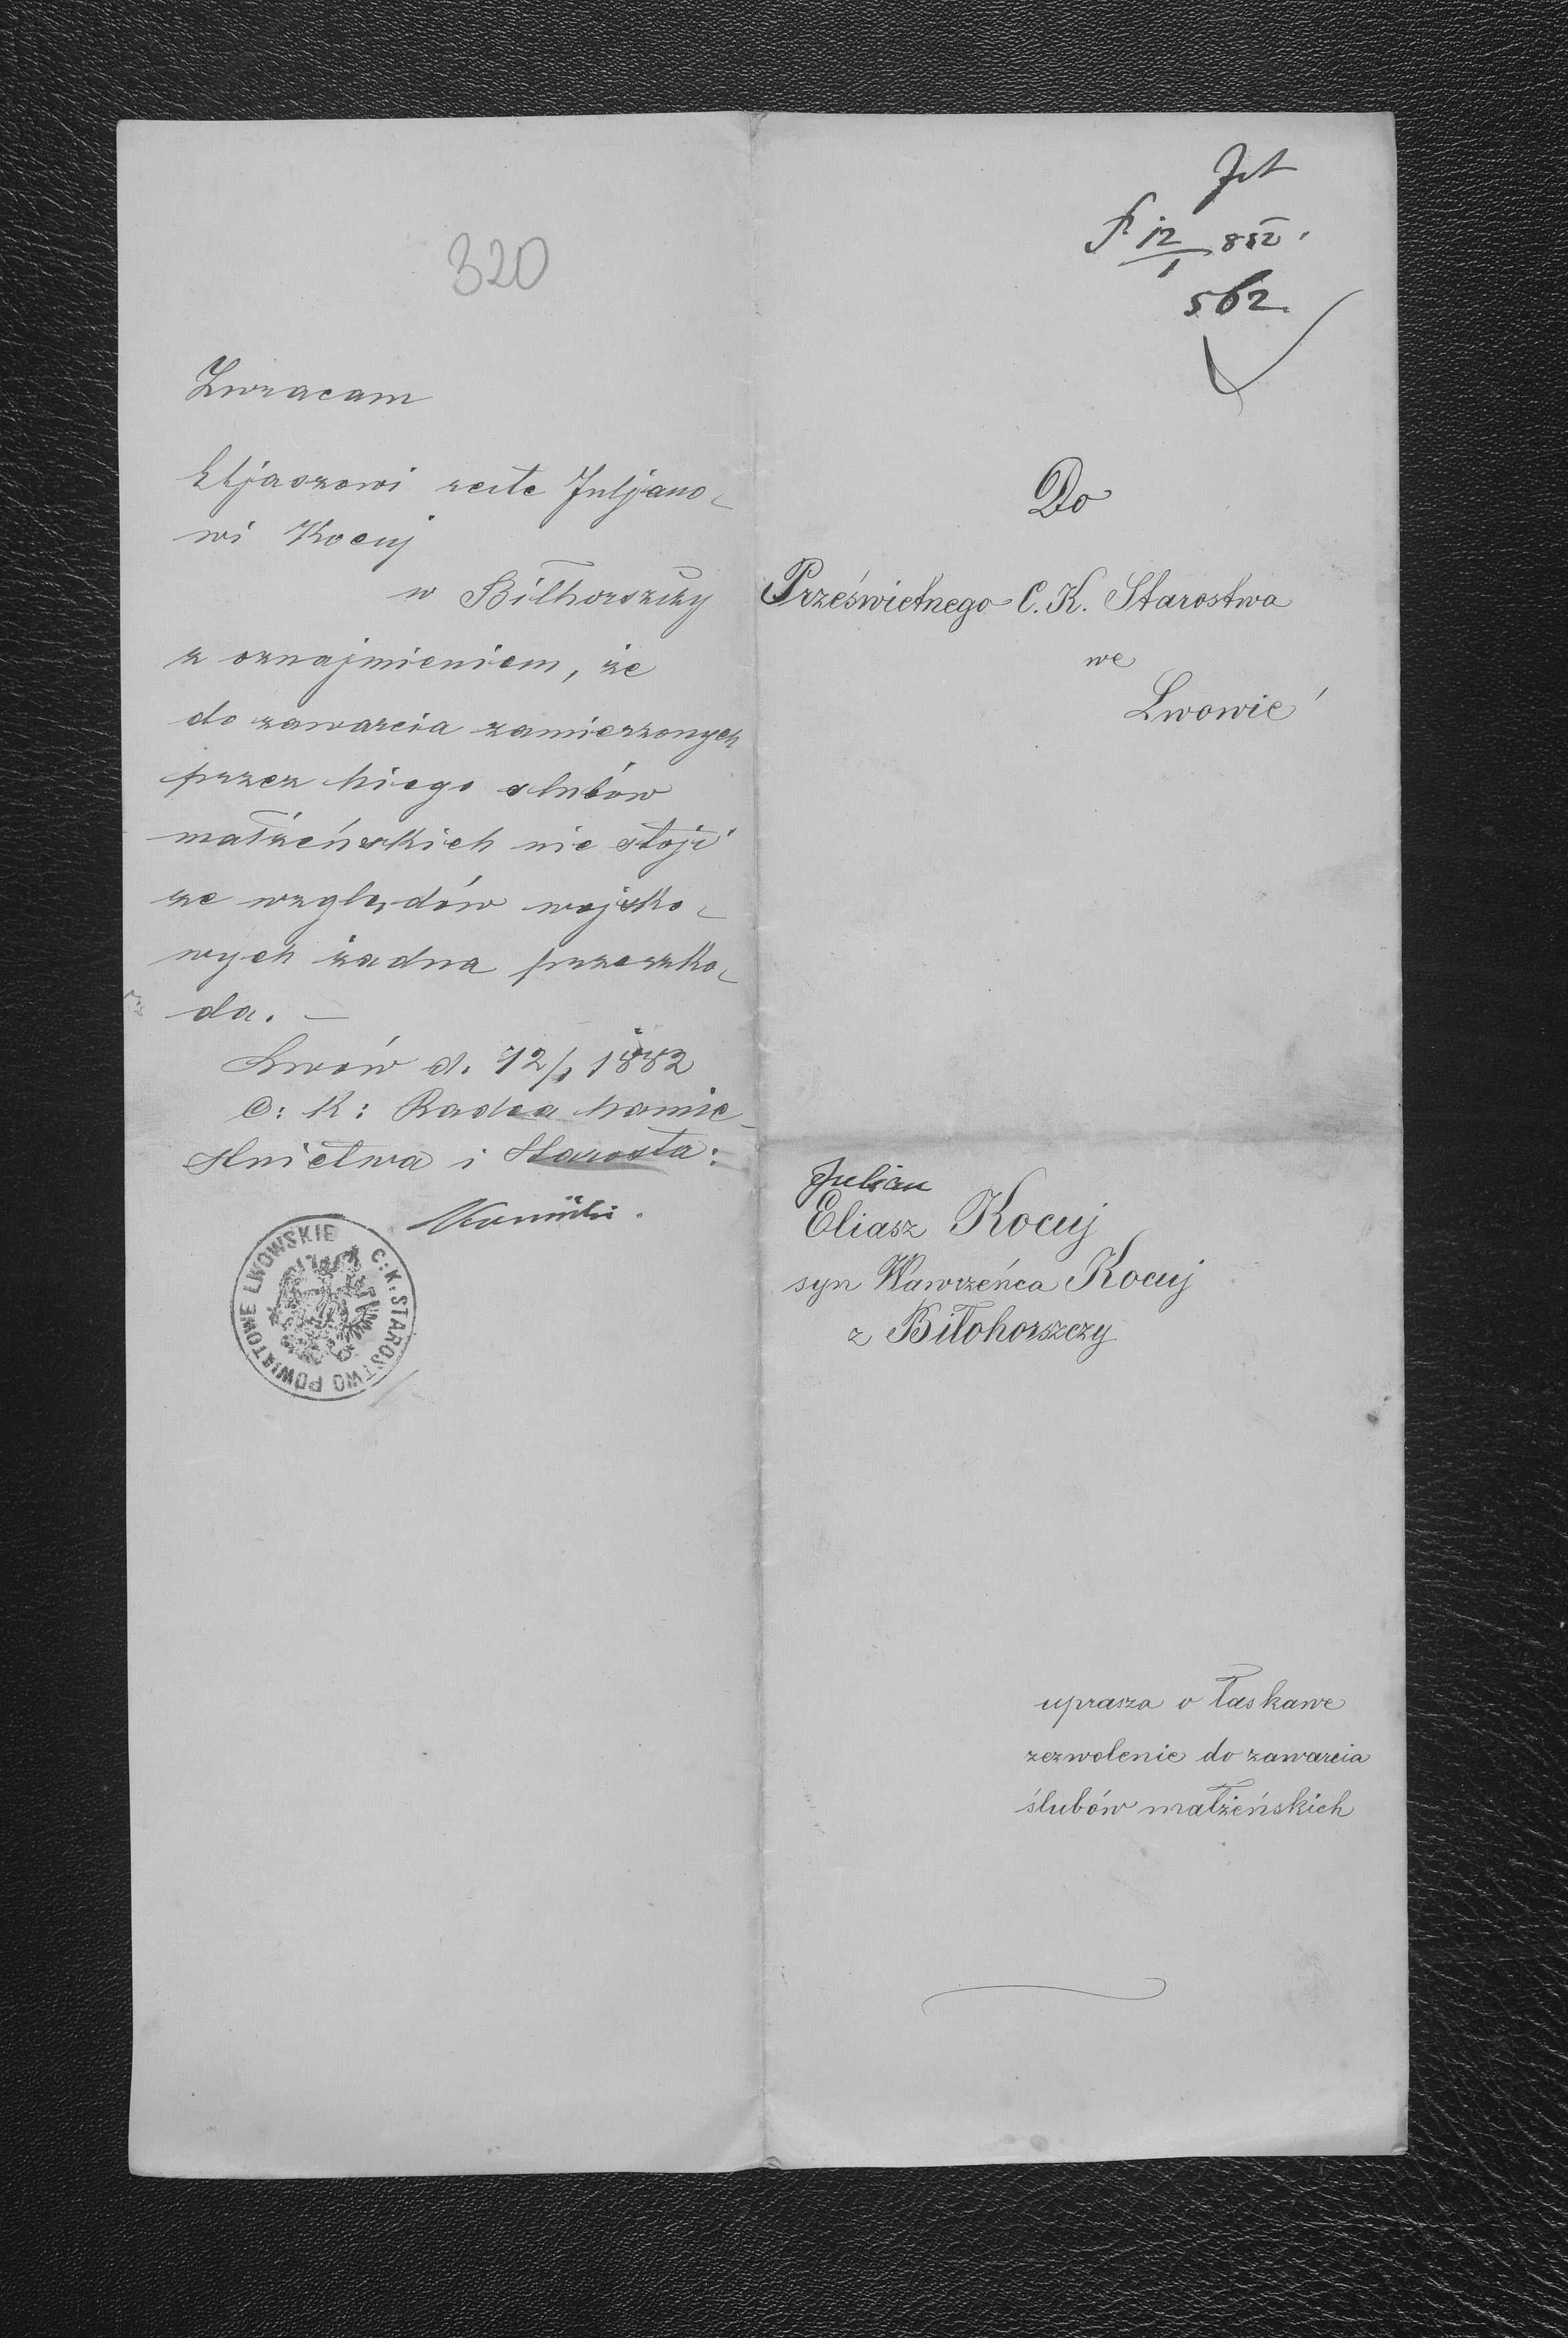 320
Zwracam
Eljaszowi recte Juljano-
wi Kocuj
w Biłhorszczy
z oznajmieniem, że
do zawarcia zamierzonych
przez niego slubów
małżeńskich nie stoji
ze względów wojsko-
wych żadna przeszko-
da. —
Lwów d. 12/1 1882
C: K: Radca namie-
stnictwa i Starosta:
C: K: STAROSTWO POWIATOWE LWOWSKIE
12/1 882
562
Do
Prześwietnego C. K. Starostwa
we
Lwowie
Julian
Eliasz Kocuj
syn Wawrzeńca Kocuj
z Biłohorszczy
uprasza o łaskawe
zezwolenie do zawarcia
ślubów małżeńskich